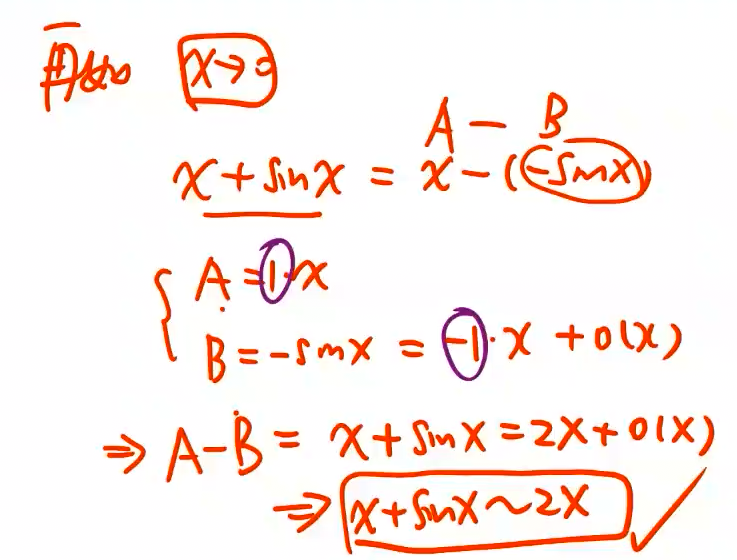 x→0
A - B
x + sinx = x - (-sinx)
A = 1·x
B = -sinx = -1·x + o(x)
⇒ A-B = x+sinx = 2x + o(x)
⇒ x+sinx ~ 2x ✓